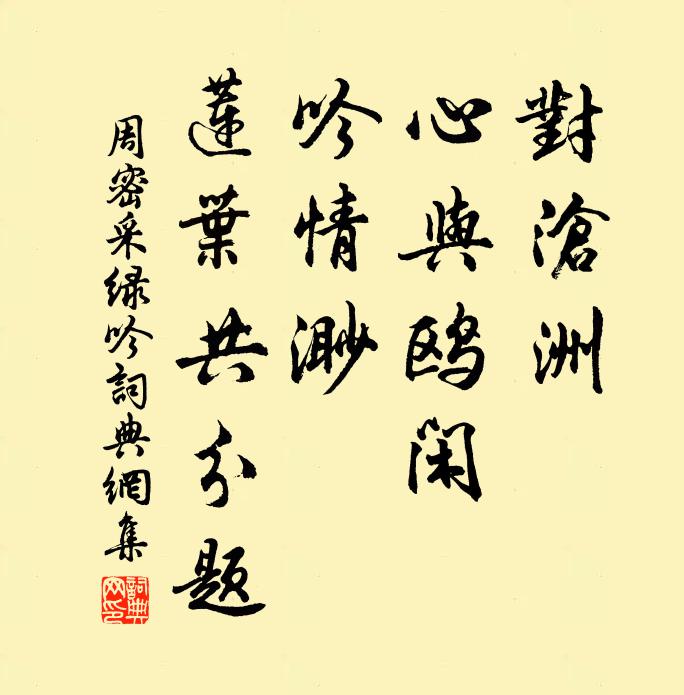 對滄洲
心與鸥闲
吟情渺
蓮葉共分題
周密采緑吟詞典網集
詞典网印